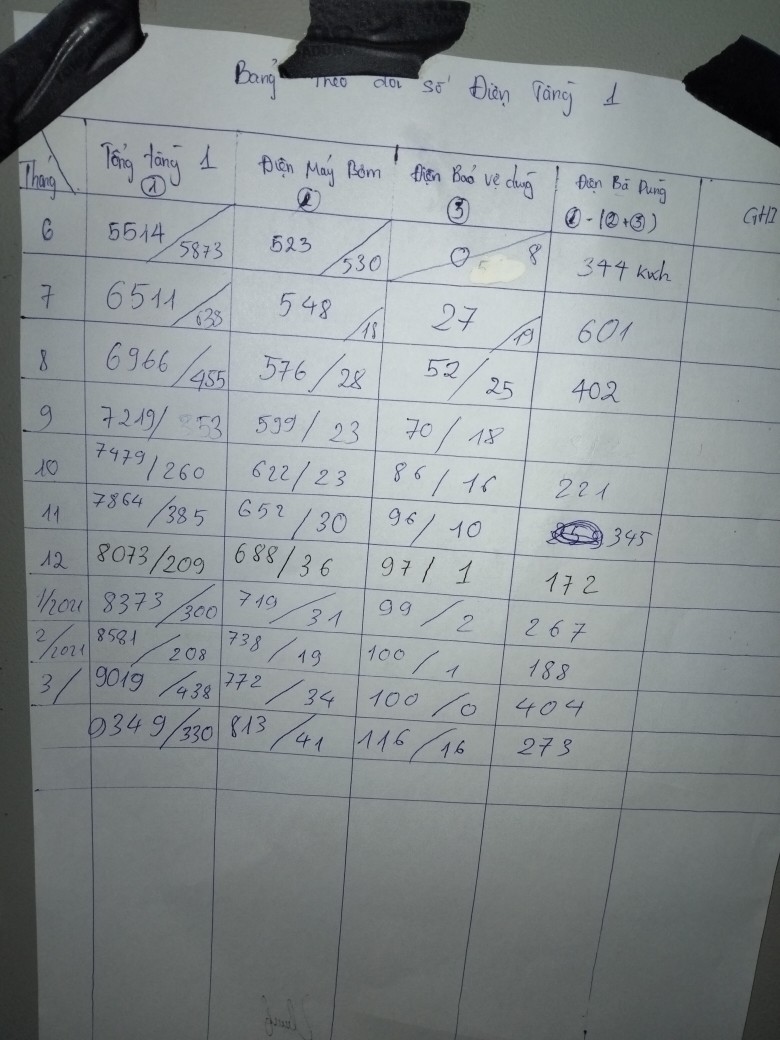 Bảng Theo dõi số Điện Tầng 1
Tháng Tổng tầng 1 Điện Máy Bơm Điện Bảo vệ dùng Điện Bà Dung GHI
① ② ③ ① - (②+③)
6 5514/5873 523/530 0/8 344 kwh
7 6511/638 548/18 27/19 601
8 6966/455 576/28 52/25 402
9 7219/253 599/23 70/18
10 7479/260 622/23 86/16 221
11 7864/385 652/30 96/10 345
12 8073/209 688/36 97/1 172
1/2021 8373/300 719/31 99/2 267
2/2021 8581/208 738/19 100/1 188
3/ 9019/438 772/34 100/0 404
9349/330 813/41 116/16 273